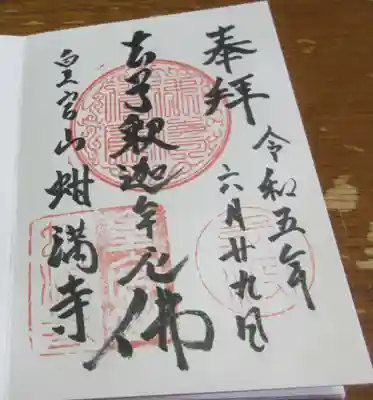 奉拝
令和五年
六月廿九日
本尊釈迦牟尼佛
皇宮山 蚶満寺